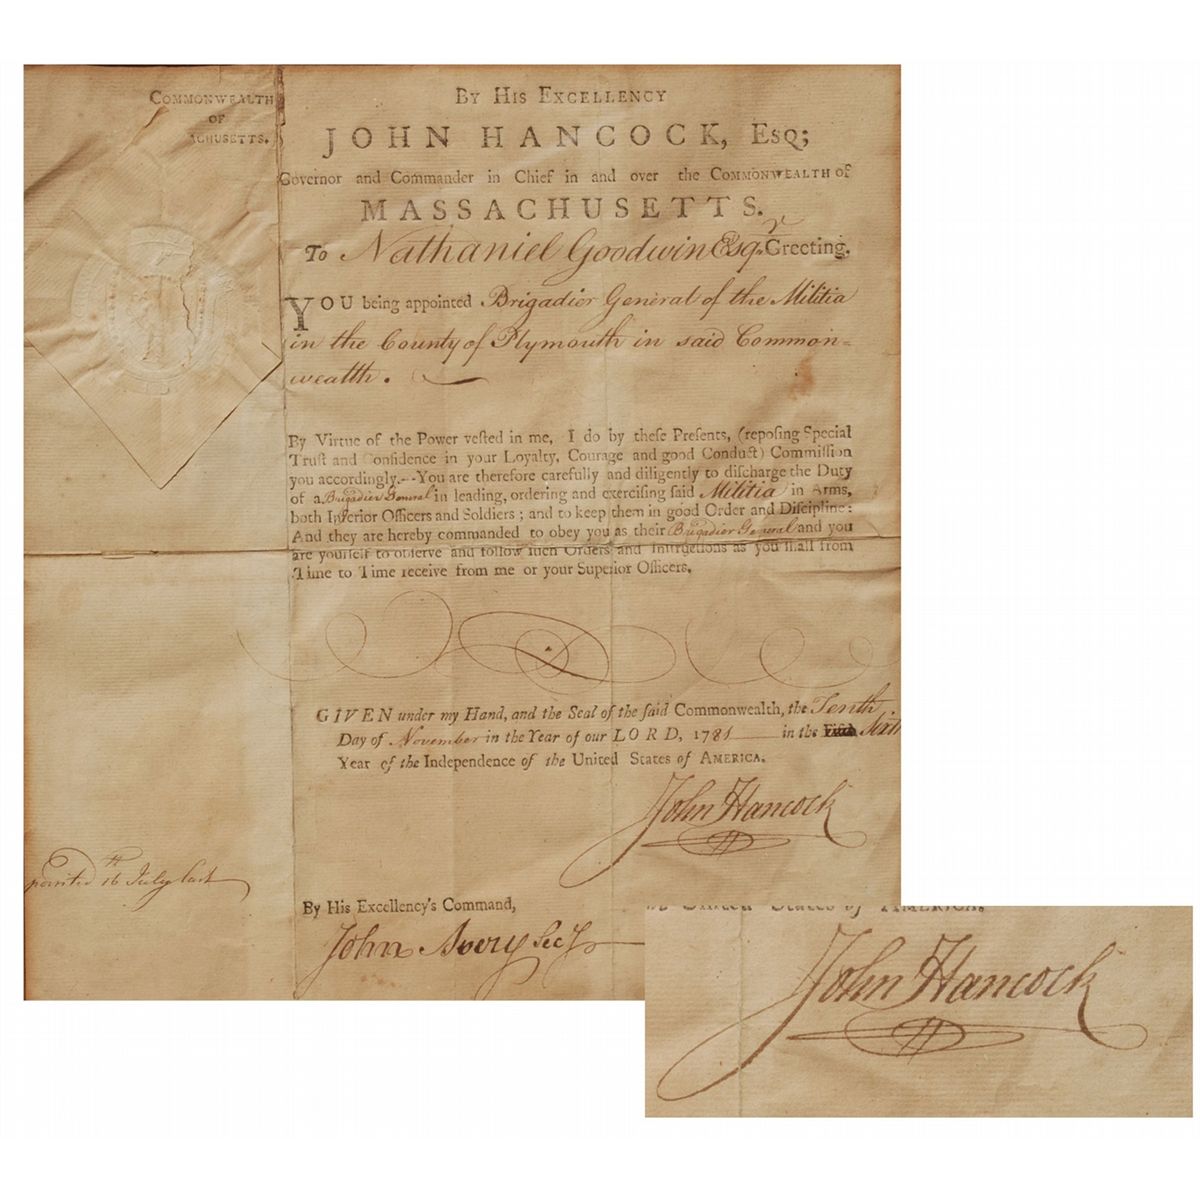 COMMONWEALTH
OF
ACHUSETTS.
BY HIS EXCELLENCY
JOHN HANCOCK, ESQ;
Governor and Commander in Chief in and over the COMMONWEALTH of
MASSACHUSETTS.
To Nathaniel Goodwin Esqr. Greeting.
YOU being appointed Brigadier General of the Militia
in the County of Plymouth in said Common-
wealth.
By Virtue of the Power veſted in me, I do by theſe Preſents, (repoſing Special
Truſt and Confidence in your Loyalty, Courage and good Conduct) Commiſſion
you accordingly.--You are therefore carefully and diligently to diſcharge the Duty
of a Brigadier General in leading, ordering and exerciſing ſaid Militia in Arms,
both Inferior Officers and Soldiers; and to keep them in good Order and Diſcipline:
And they are hereby commanded to obey you as their Brigadier General and you
are yourſelf to obſerve and follow ſuch Orders and Inſtructions as you ſhall from
Time to Time receive from me or your Superior Officers.
GIVEN under my Hand, and the Seal of the ſaid Commonwealth, the Tenth
Day of November in the Year of our LORD, 1781 in the Fifth Sixth
Year of the Independence of the United States of AMERICA.
John Hancock
pointed 16th July last
By His Excellency's Command,
John Avery Secy
United States of AMERICA.
John Hancock